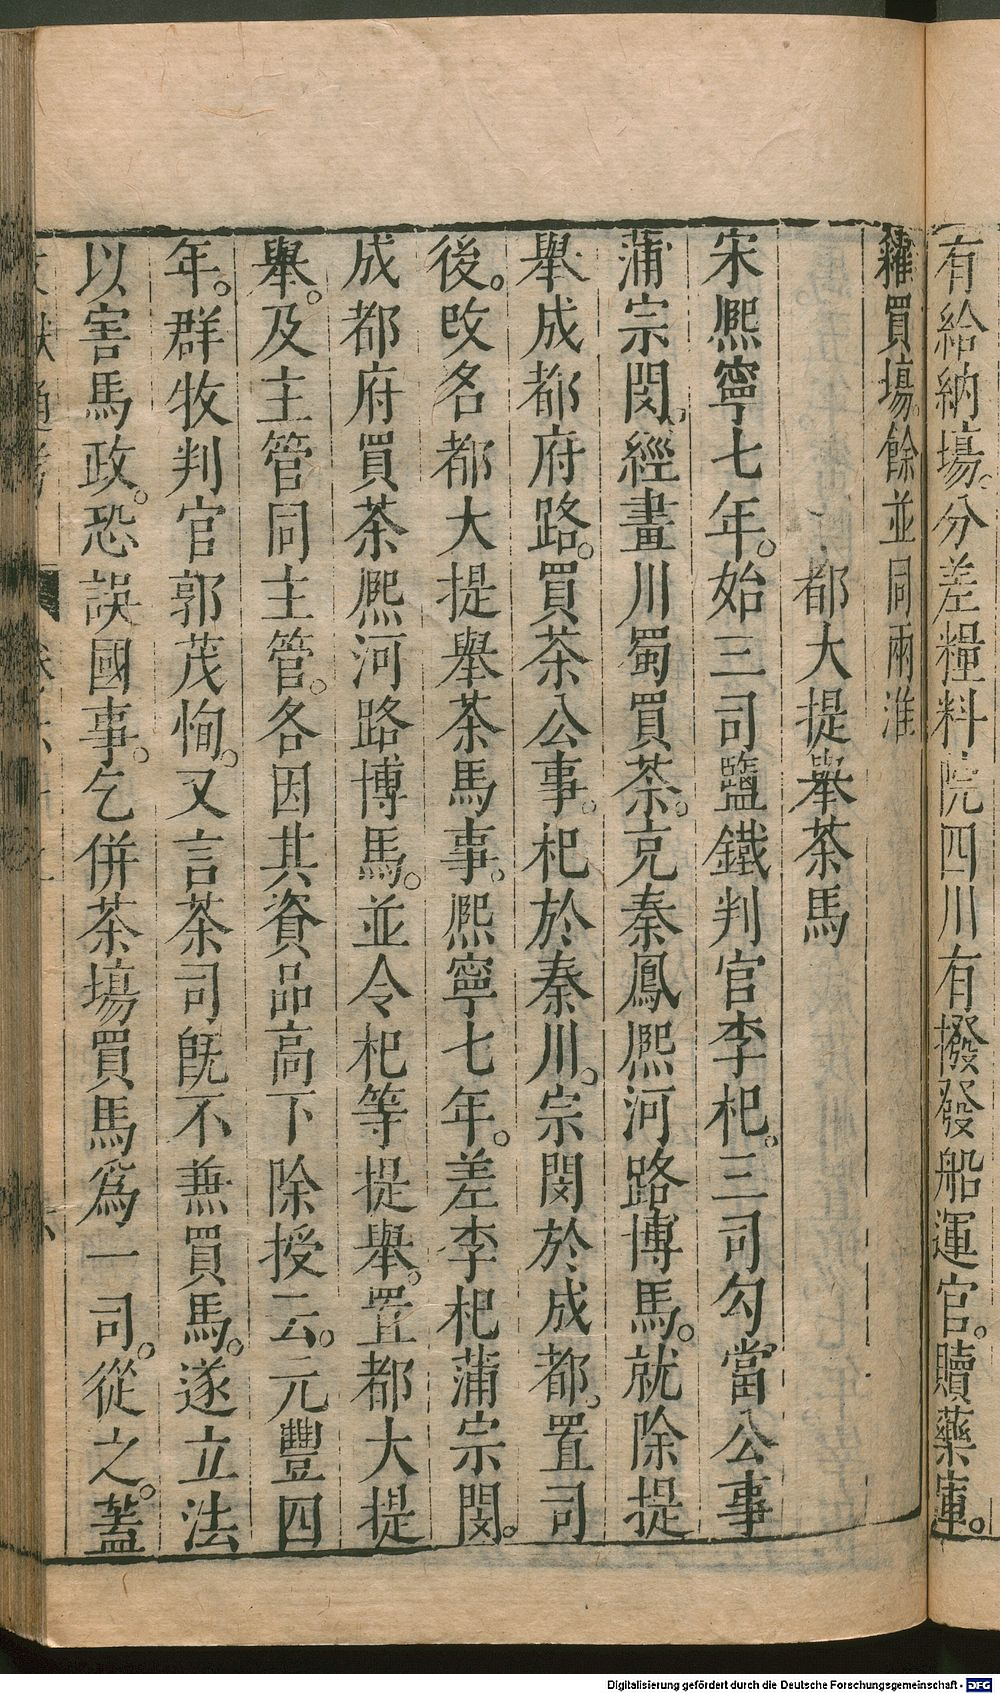 有給納場。分差糧料院四川有撥發船運官。贖藥庫。
糴買場。餘並同兩淮
都大提舉茶馬
宋熈寧七年。始三司鹽鐵判官李杞。三司勾當公事
蒲宗閔。經畫川蜀買茶。克秦鳳熈河路博馬。就除提
舉成都府路。買茶公事。杞於秦川。宗閔於成都。置司
後。改名都大提舉茶馬事。熈寧七年。差李杞蒲宗閔。
成都府買茶熈河路博馬。並令杞等提舉。置都大提
舉。及主管同主管。各因其資品高下除授云。元豐四
年。群牧判官郭茂恂。又言茶司旣不兼買馬。遂立法
以害馬政。恐誤國事。乞併茶場買馬爲一司。從之。蓋
Digitalisierung gefördert durch die Deutsche Forschungsgemeinschaft - DFG